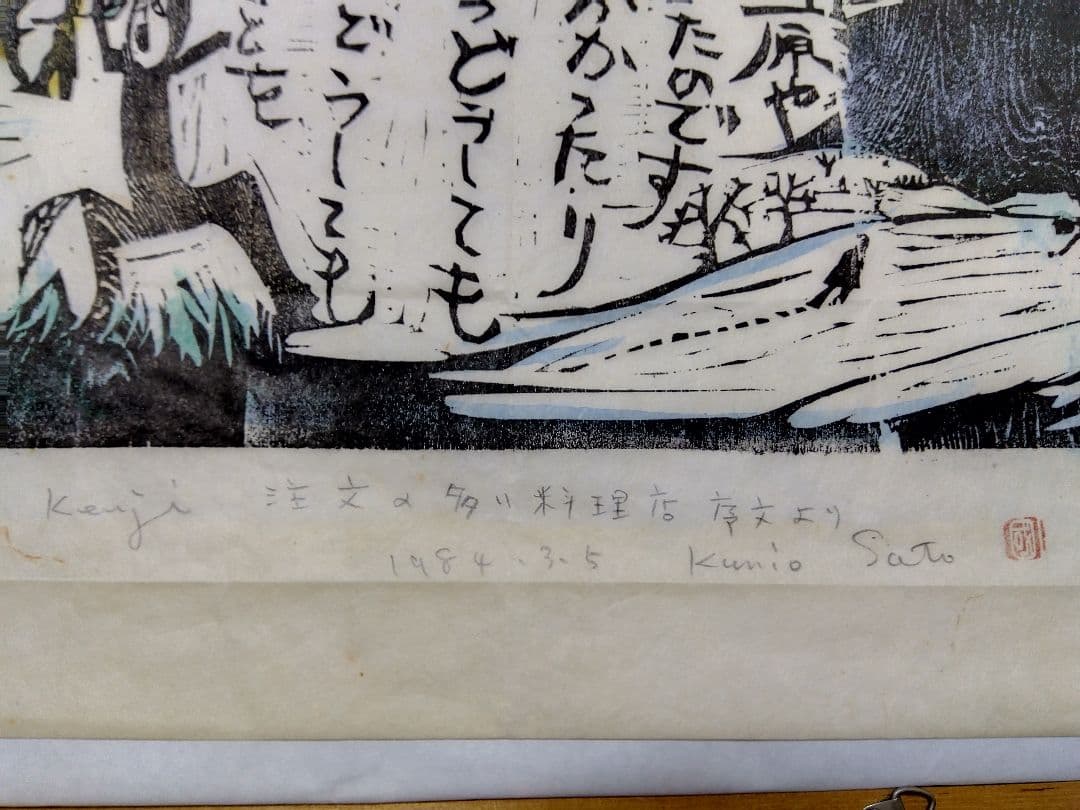 原や
たのです
かかったり
っどうしても
どうしても
とも
Kenji 注文の多い料理店 序文より
1984.3.5 Kunio Sato